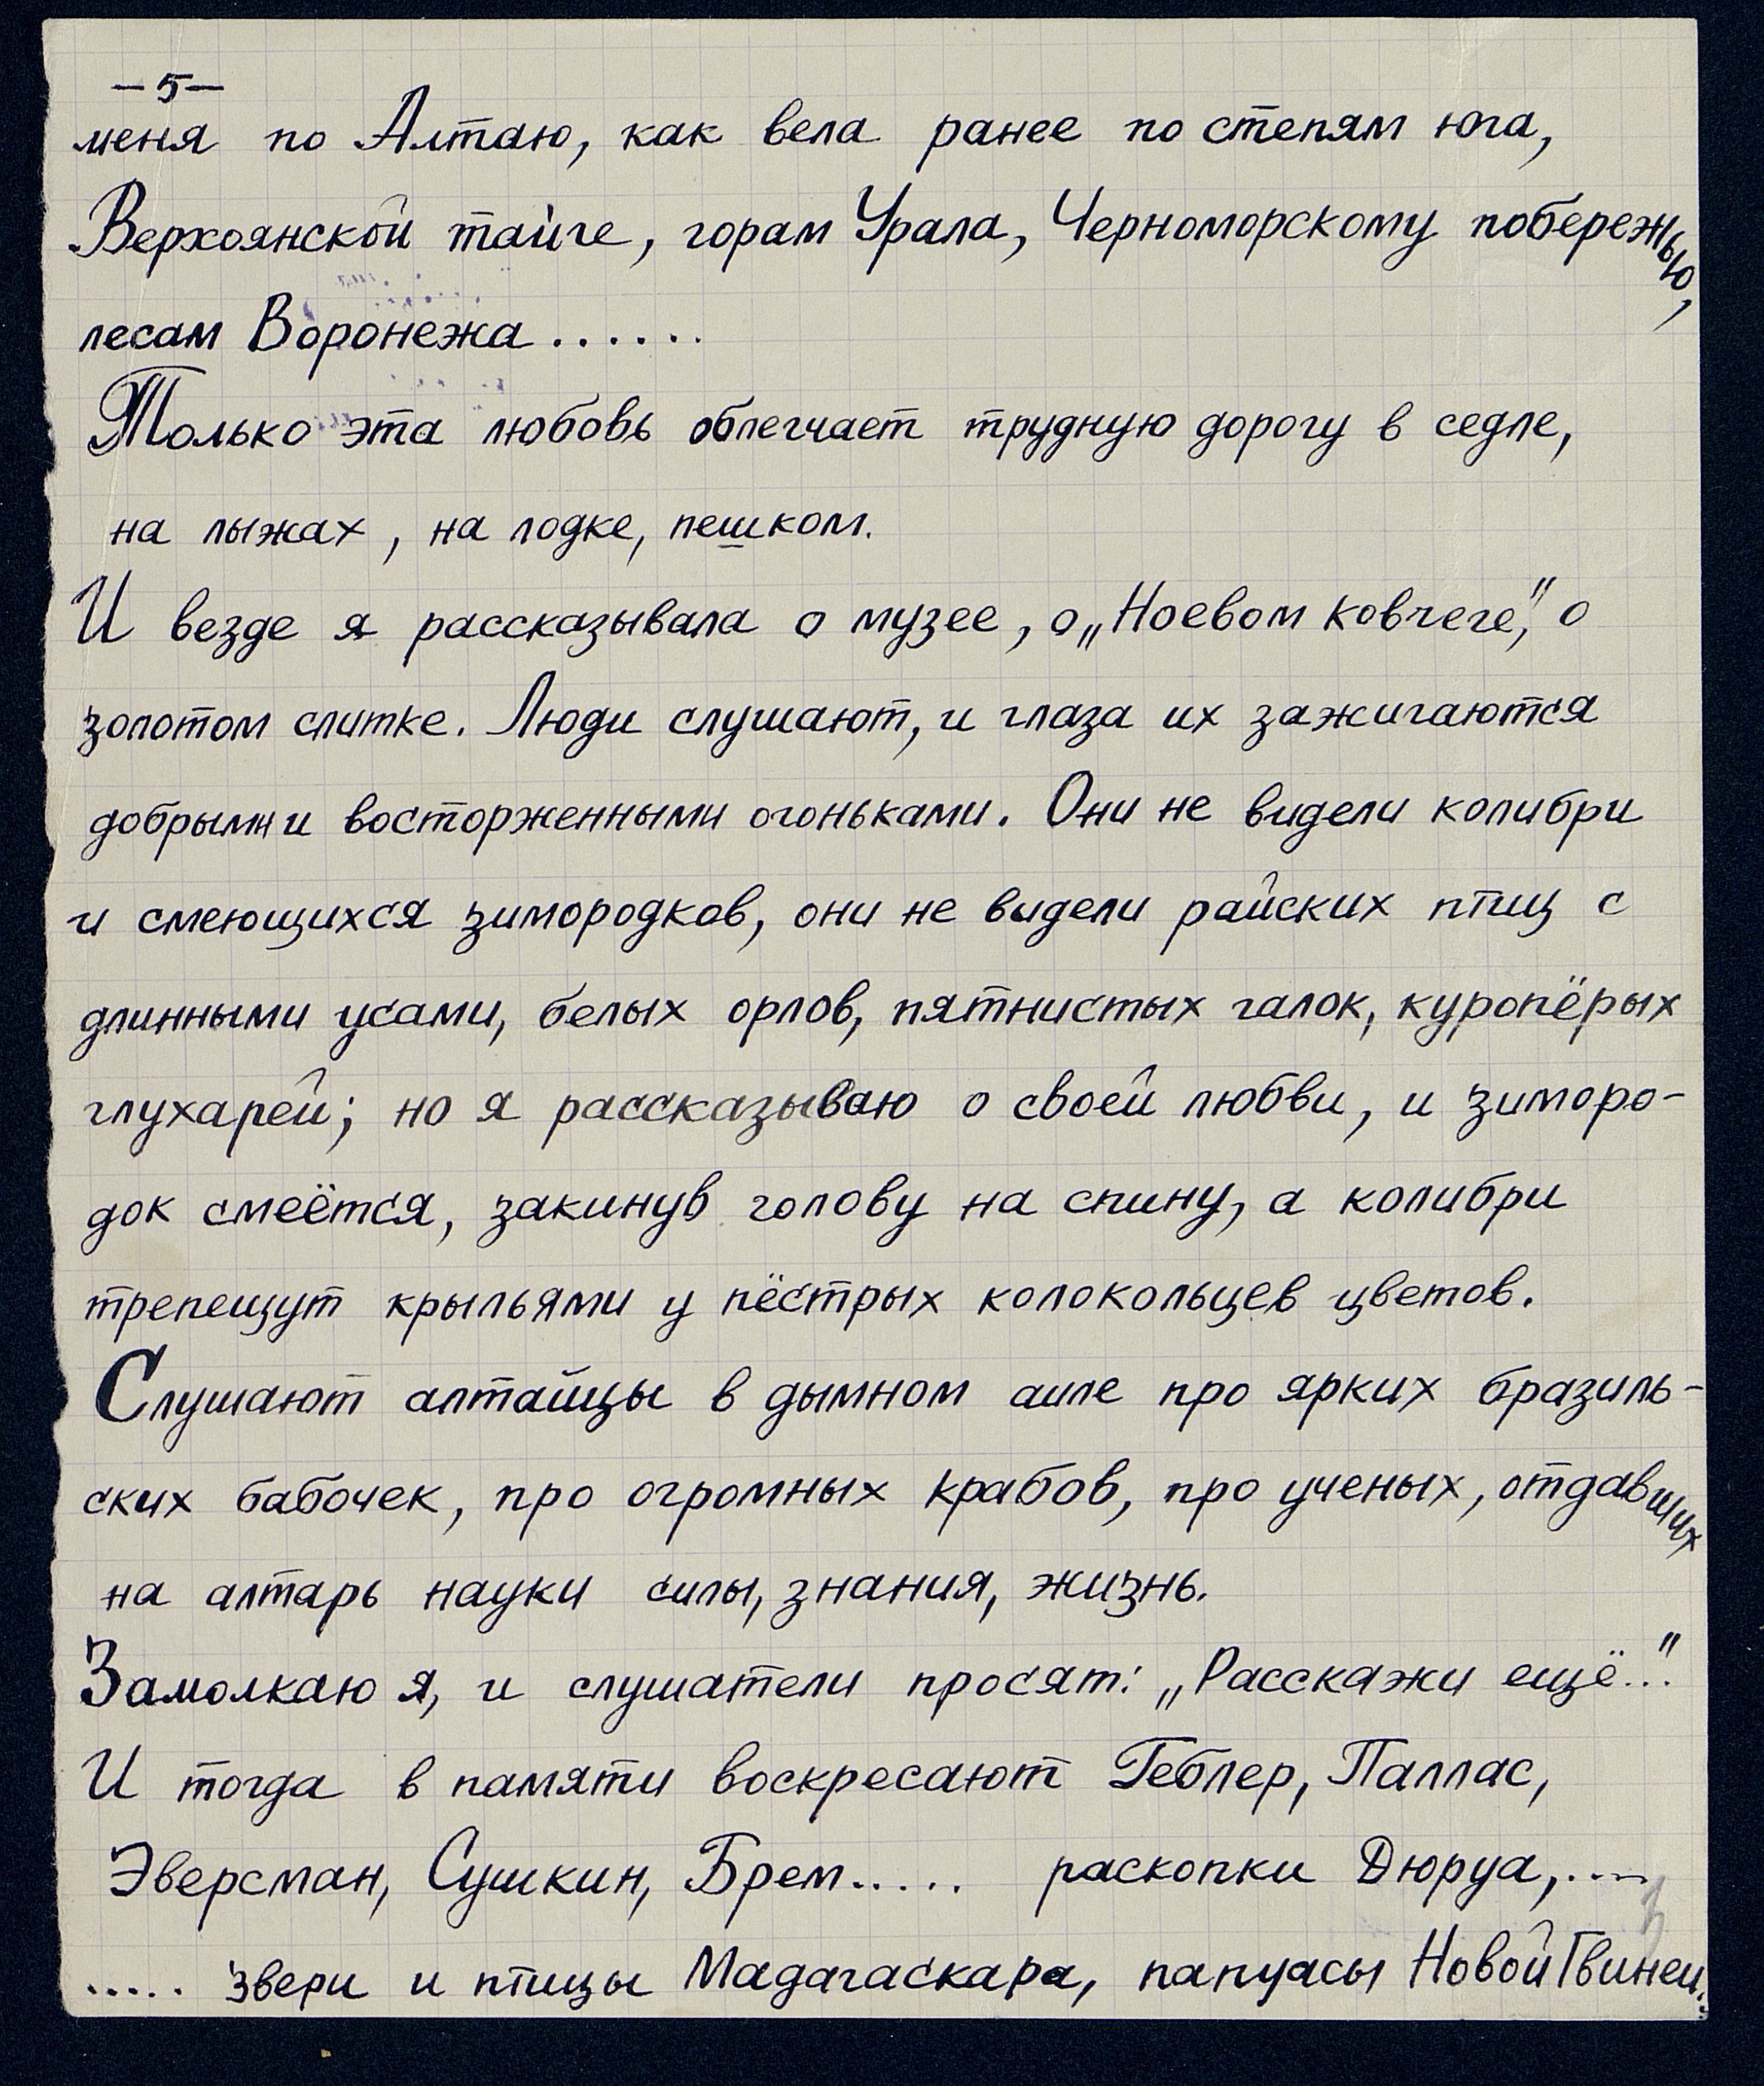 –5–
меня по Алтаю, как вела ранее по степям юга,
Верхоянской тайге, горам Урала, Черноморскому побережью,
лесам Воронежа......
Только эта любовь облегчает трудную дорогу в седле,
на лыжах, на лодке, пешком.
И везде я рассказывала о музее, о „Ноевом ковчеге", о
золотом слитке. Люди слушают, и глаза их зажигаются
добрыми восторженными огоньками. Они не видели колибри
и смеющихся зимородков, они не видели райских птиц с
длинными усами, белых орлов, пятнистых галок, куропёрых
глухарей; но я рассказываю о своей любви, и зиморо-
док смеётся, закинув голову на спину, а колибри
трепещут крыльями у пёстрых колокольцев цветов.
Слушают алтайцы в дымном аиле про ярких бразиль-
ских бабочек, про огромных крабов, про ученых, отдавших
на алтарь науки силы, знания, жизнь.
Замолкаю я, и слушатели просят: „Расскажи ещё..."
И тогда в памяти воскресают Геблер, Паллас,
Эверсман, Сушкин, Брем..... раскопки Дюруа,....
..... звери и птицы Мадагаскара, папуасы Новой Гвинеи..